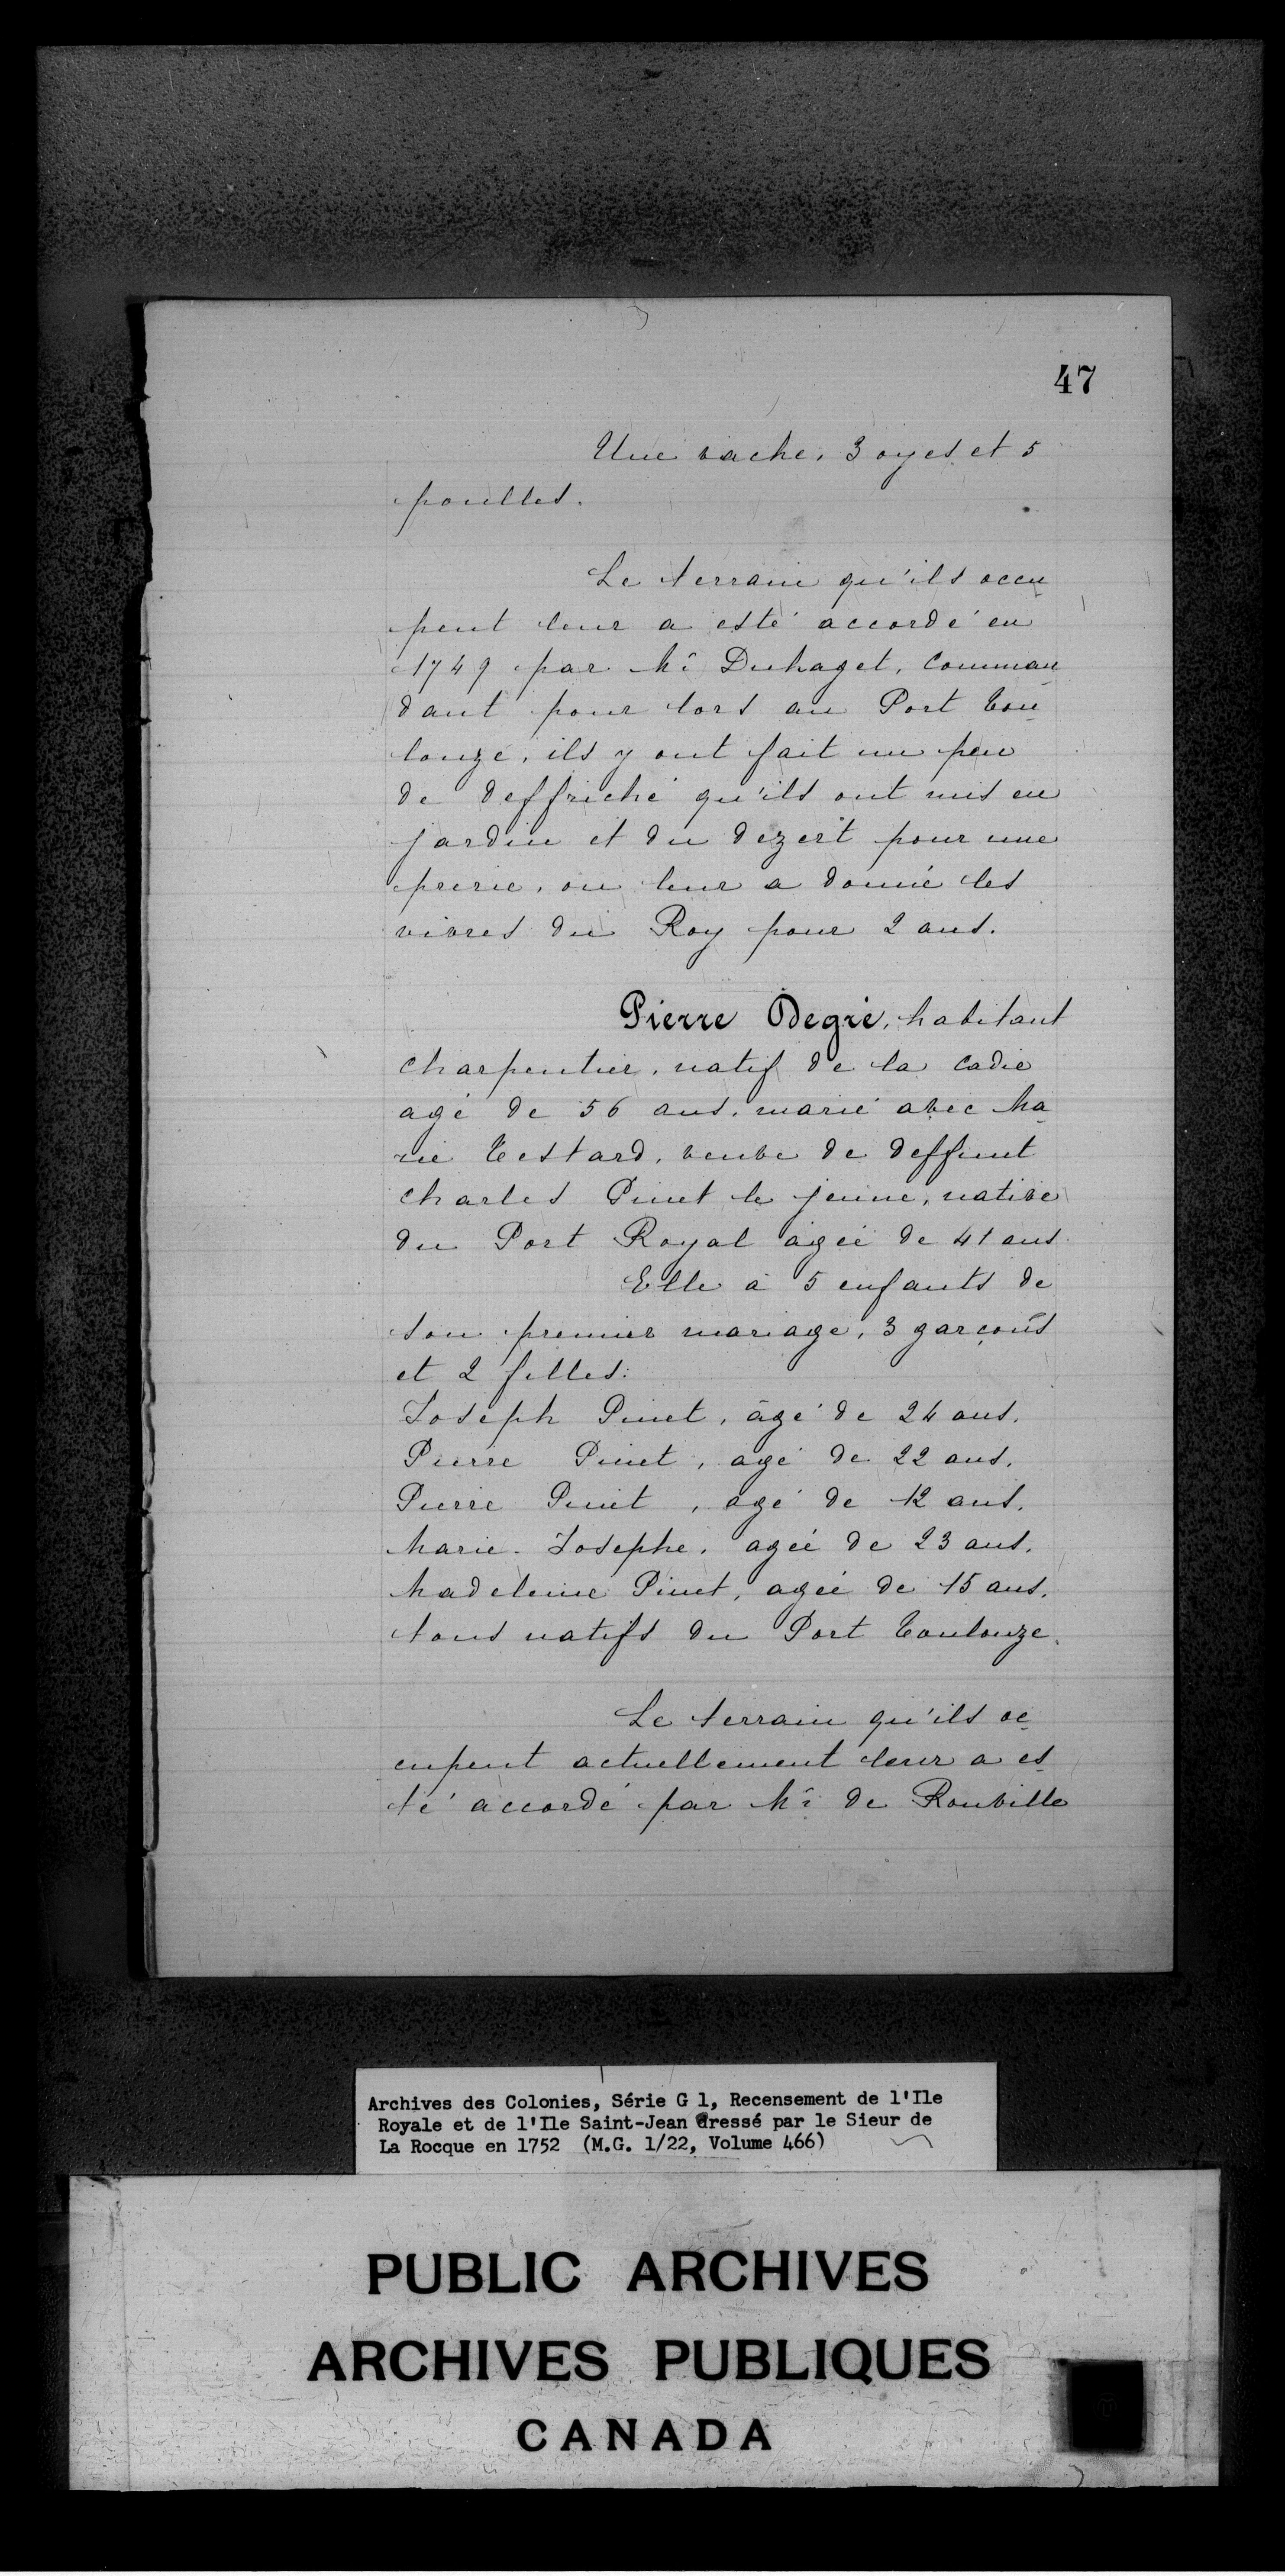 47
Une vache, 3 oyes et 5
poulles.
Le terrain qu'ils occu
pent leur a esté accordé en
1749 par Mr Duhaget, comman
dant pour lors au Port Tou
louze, ils y ont fait un peu
de deffriché qu'ils ont mis en
jardin et du dezert pour une
prerie, on leur a donné les
vivres du Roy pour 2 ans.
Pierre Degré, habitant
charpentier, natif de la Cadie
agé de 56 ans, marié avec Ma
rie Testard, veuve de deffunt
Charles Pinet le jeune, native
du Port Royal agée de 41 ans
Elle a 5 enfants de
son premier mariage, 3 garçons
et 2 filles:
Joseph Pinet, âgé de 24 ans.
Pierre Pinet, agé de 22 ans.
Pierre Pinet, agé de 12 ans.
Marie-Josephe, agée de 23 ans.
Madeleine Pinet, agée de 15 ans.
tous natifs du Port Toulouze.
Le terrain qu'ils oc
cupent actuellement leur a es
té accordé par Mr de Rouville
Archives des Colonies, Série G 1, Recensement de l'Ile
Royale et de l'Ile Saint-Jean dressé par le Sieur de
La Rocque en 1752 (M.G. 1/22, Volume 466)
PUBLIC ARCHIVES
ARCHIVES PUBLIQUES
CANADA